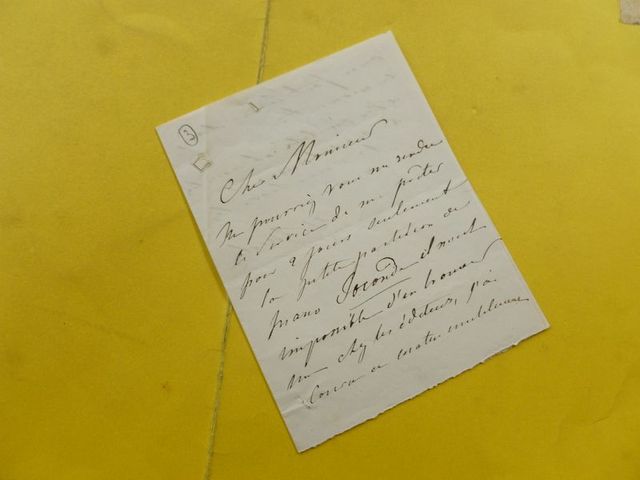 3
Cher Monsieur
Me pourriez vous me rendre
le service de me prêter
pour 2 jours seulement
la petite partition de
piano Joconde il nous
impossible d'en trouver
une chez les éditeurs, j'ai